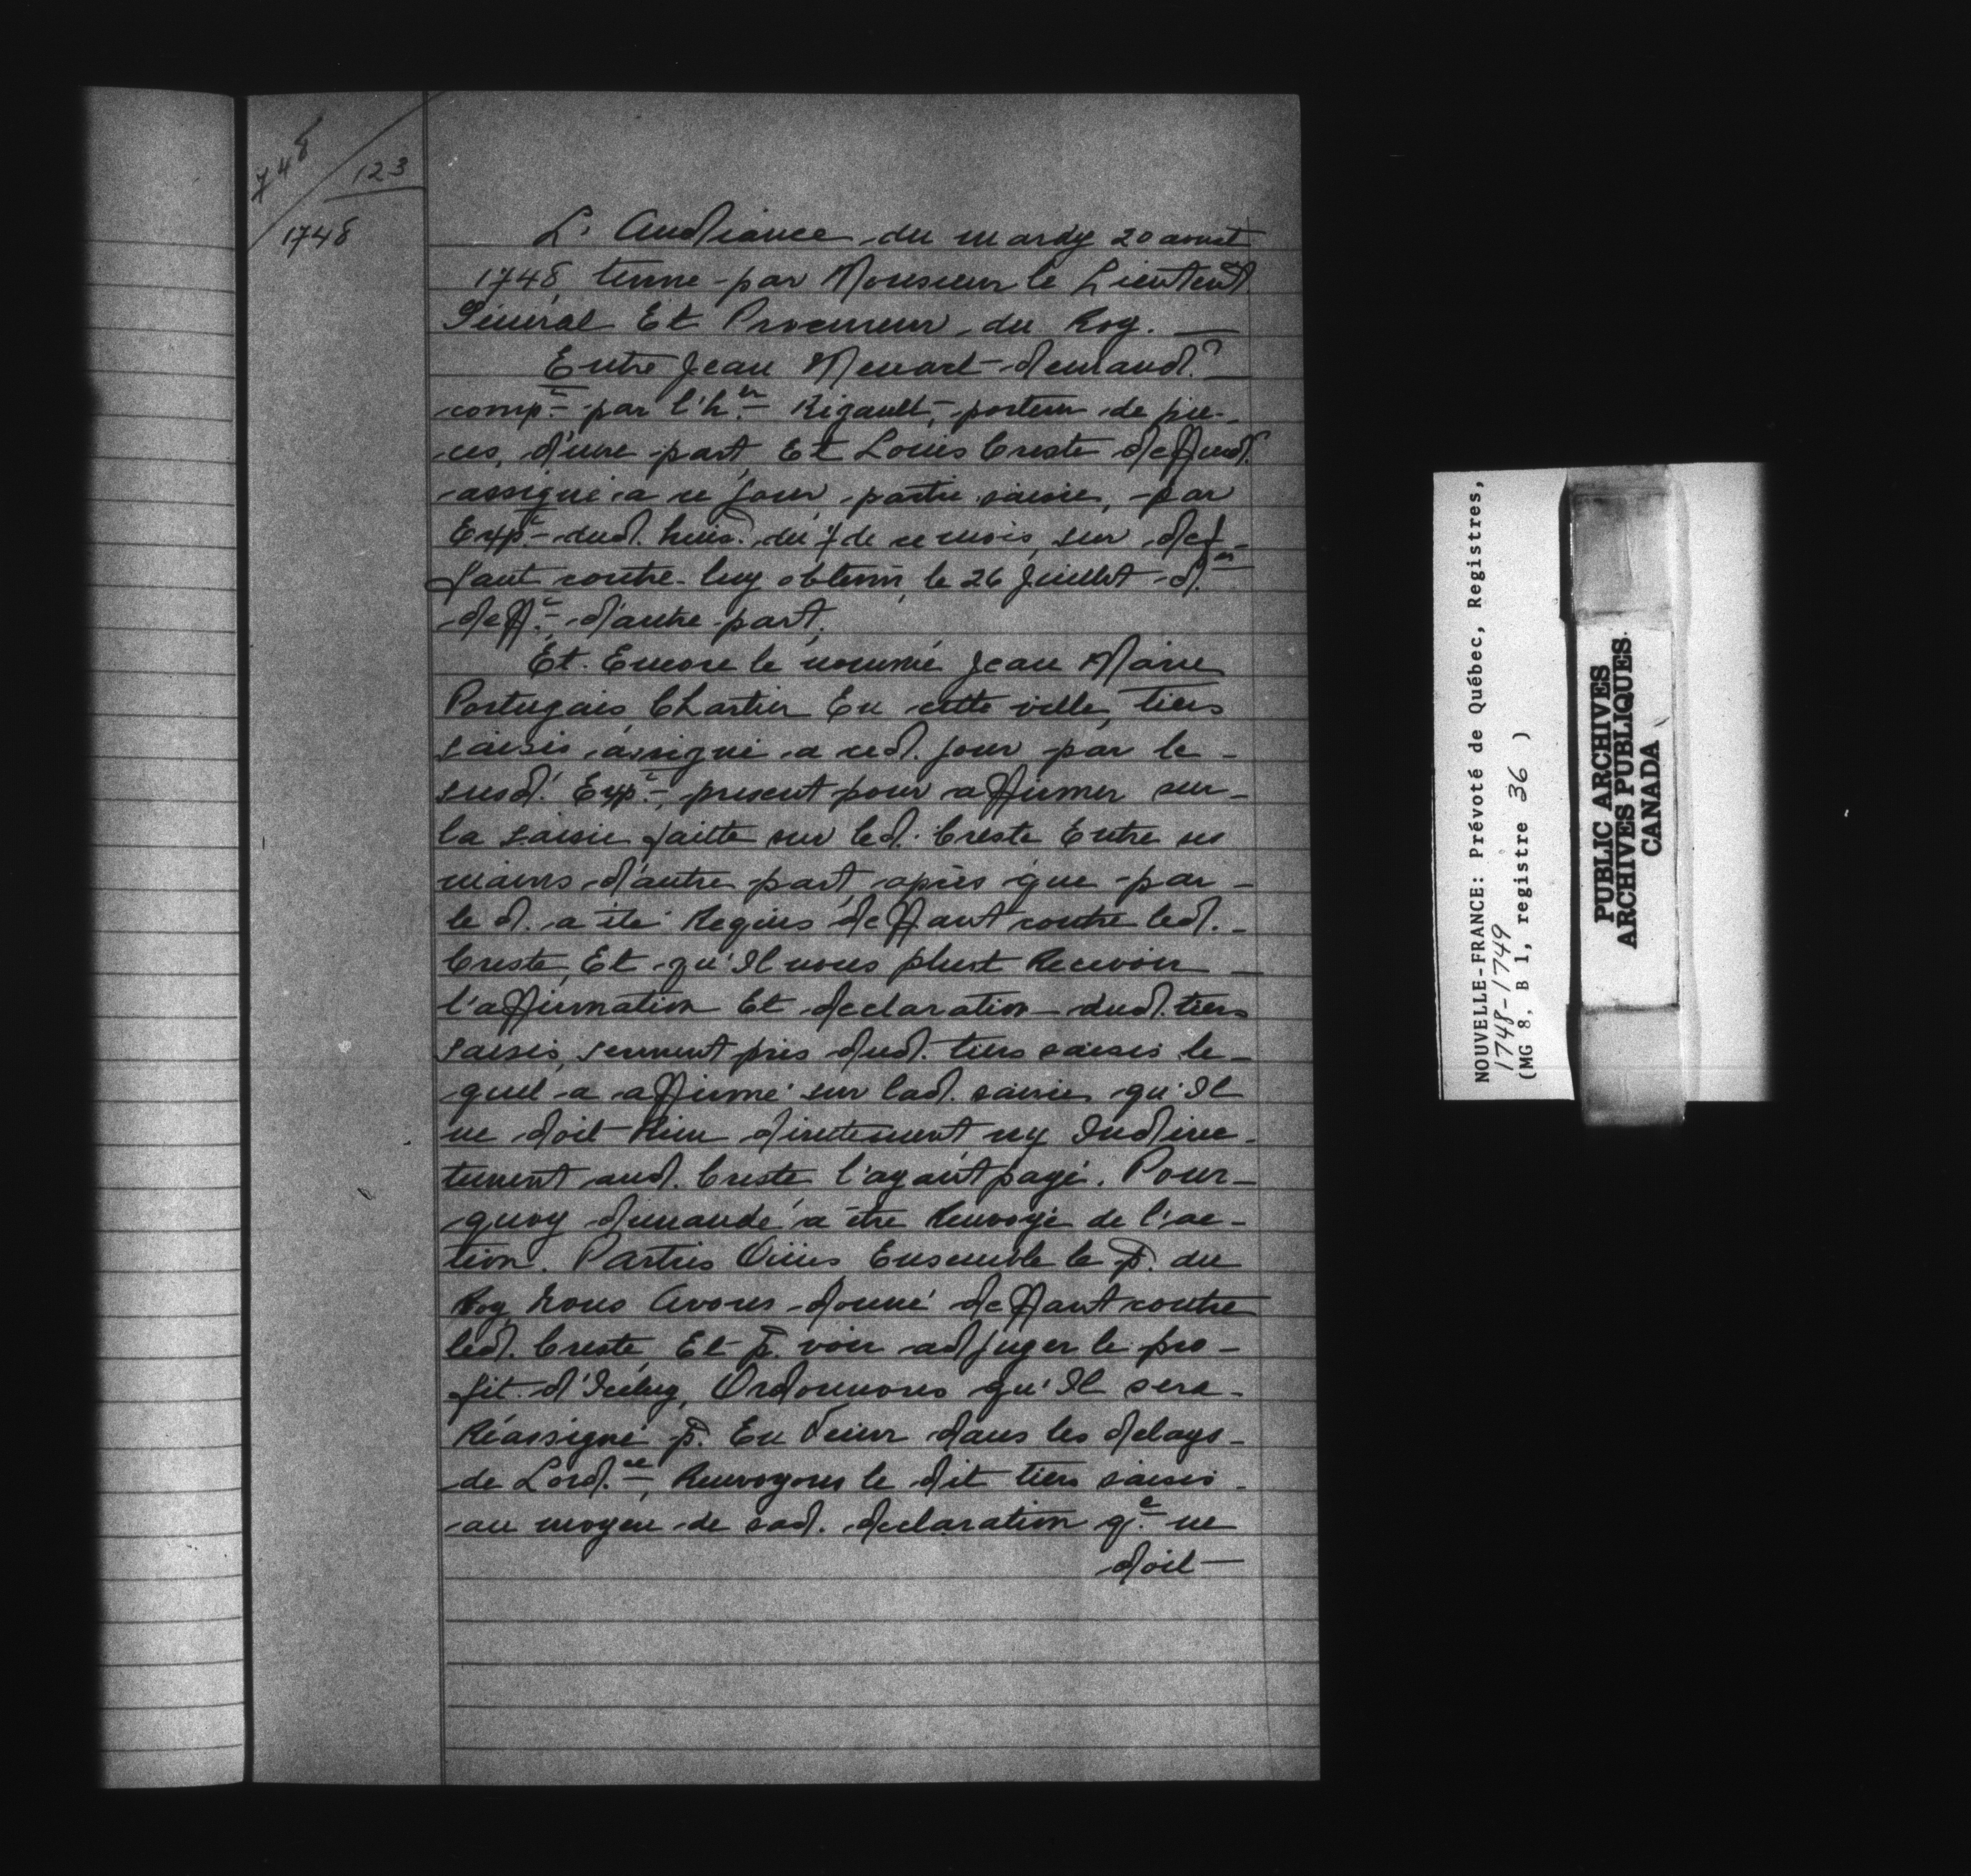 748
123
1748
L'Audiance du mardy 20 aoust
1748 tenue par Monsieur le Lieutent
Général Et Procureur du Roy. —
Entre Jean Menart demandr
compt par l'hr Rigault, porteur de pie-
ces, d'une part Et Louis Creste deffendr
assigné a ce jour, partie saisie, par
Expt dud. huis. du 7 de ce mois, sur def-
faut contre luy obtenu, le 26 Juillet dr
defft d'autre part,
Et Encore le nommé Jean Marie
Portugais Chartier En cette ville, tiers
saisis assigné a ced. jour par le
susd. Expt, present pour affirmer sur
la saisie faitte sur led. Creste Entre ses
mains d'autre part, après que par
le d. a été Requis deffaut contre led.
Creste, Et qu'Il nous plust Recevoir
l'affirmation Et declaration dud. tiers
saisis, serment pris dud. tiers saisis le-
quel a affirmé sur lad. saisie qu'Il
ne doit Rien directement ny Indirec-
tement aud. Creste l'ayant payé. Pour-
quoy demande a être Renvoyé de l'ac-
tion. Parties Oüies Ensemble le p. du
Roy Nous Avons donné deffaut contre
led. Creste, Et p. voir adjuger le pro-
fit d'Iceluy, Ordonnons qu'Il sera
Réassigné p. En Venir dans les delays
de Lord.ce, Renvoyons le dit tiers saisis
au moyen de sad. declaration qe ne
doit —
NOUVELLE-FRANCE: Prévoté de Québec, Registres,
1748-1749
(MG 8, B 1, registre 36 )
PUBLIC ARCHIVES
ARCHIVES PUBLIQUES
CANADA